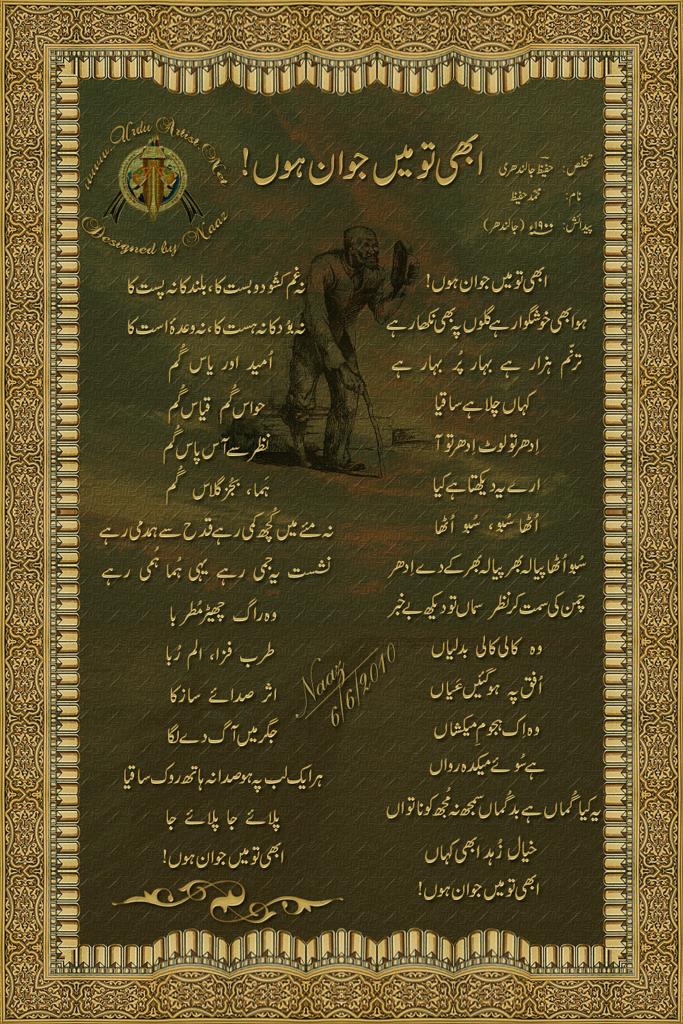 www.Urdu Artist.Net
Designed by Naaz
ابھی تو میں جوان ہوں!
تخلص: حفیظ جالندھری
نام: محمد حفیظ
پیدائش: ۱۹۰۰ء (جالندھر)
ابھی تو میں جوان ہوں!
ہوا بھی خوشگوار ہے گلوں پہ بھی نکھار ہے
ترنّم ہزار ہے بہار پُر بہار ہے
کہاں چلا ہے ساقیا
اِدھر تو لوٹ اِدھر تو آ
ارے یہ دیکھتا ہے کیا
اُٹھا سُبو، سُبو اُٹھا
سُبو اُٹھا پیالہ بھر پیالہ بھر کے دے اِدھر
چمن کی سمت کر نظر سماں تو دیکھ بے خبر
وہ کالی کالی بدلیاں
اُفق پہ ہو گئیں عَیاں
وہ اِک ہجومِ میکشاں
ہے سُوئے میکدہ رواں
یہ کیا گُماں ہے بدگُماں سمجھ نہ مُجھ کو ناتواں
خیالِ زُہد ابھی کہاں
ابھی تو میں جوان ہوں!
نہ غم کشُود و بست کا، بلند کا نہ پست کا
نہ بُود کا نہ ہست کا، نہ وعدۂ الست کا
اُمید اور یاس گُم
حواس گُم قیاس گُم
نظر سے آس پاس گُم
ہَما، بجُز گلاس گُم
نہ مئے میں کُچھ کمی رہے قدح سے ہمدمی رہے
نشست یہ جمی رہے یہی ہُما ہُمی رہے
وہ راگ چھیڑ مُطربا
طرب فزا، الم رُبا
اثر صدائے ساز کا
جگر میں آگ دے لگا
ہر ایک لب پہ ہو صدا نہ ہاتھ روک ساقیا
پلائے جا پلائے جا
ابھی تو میں جوان ہوں!
Naaz
6/6/2010